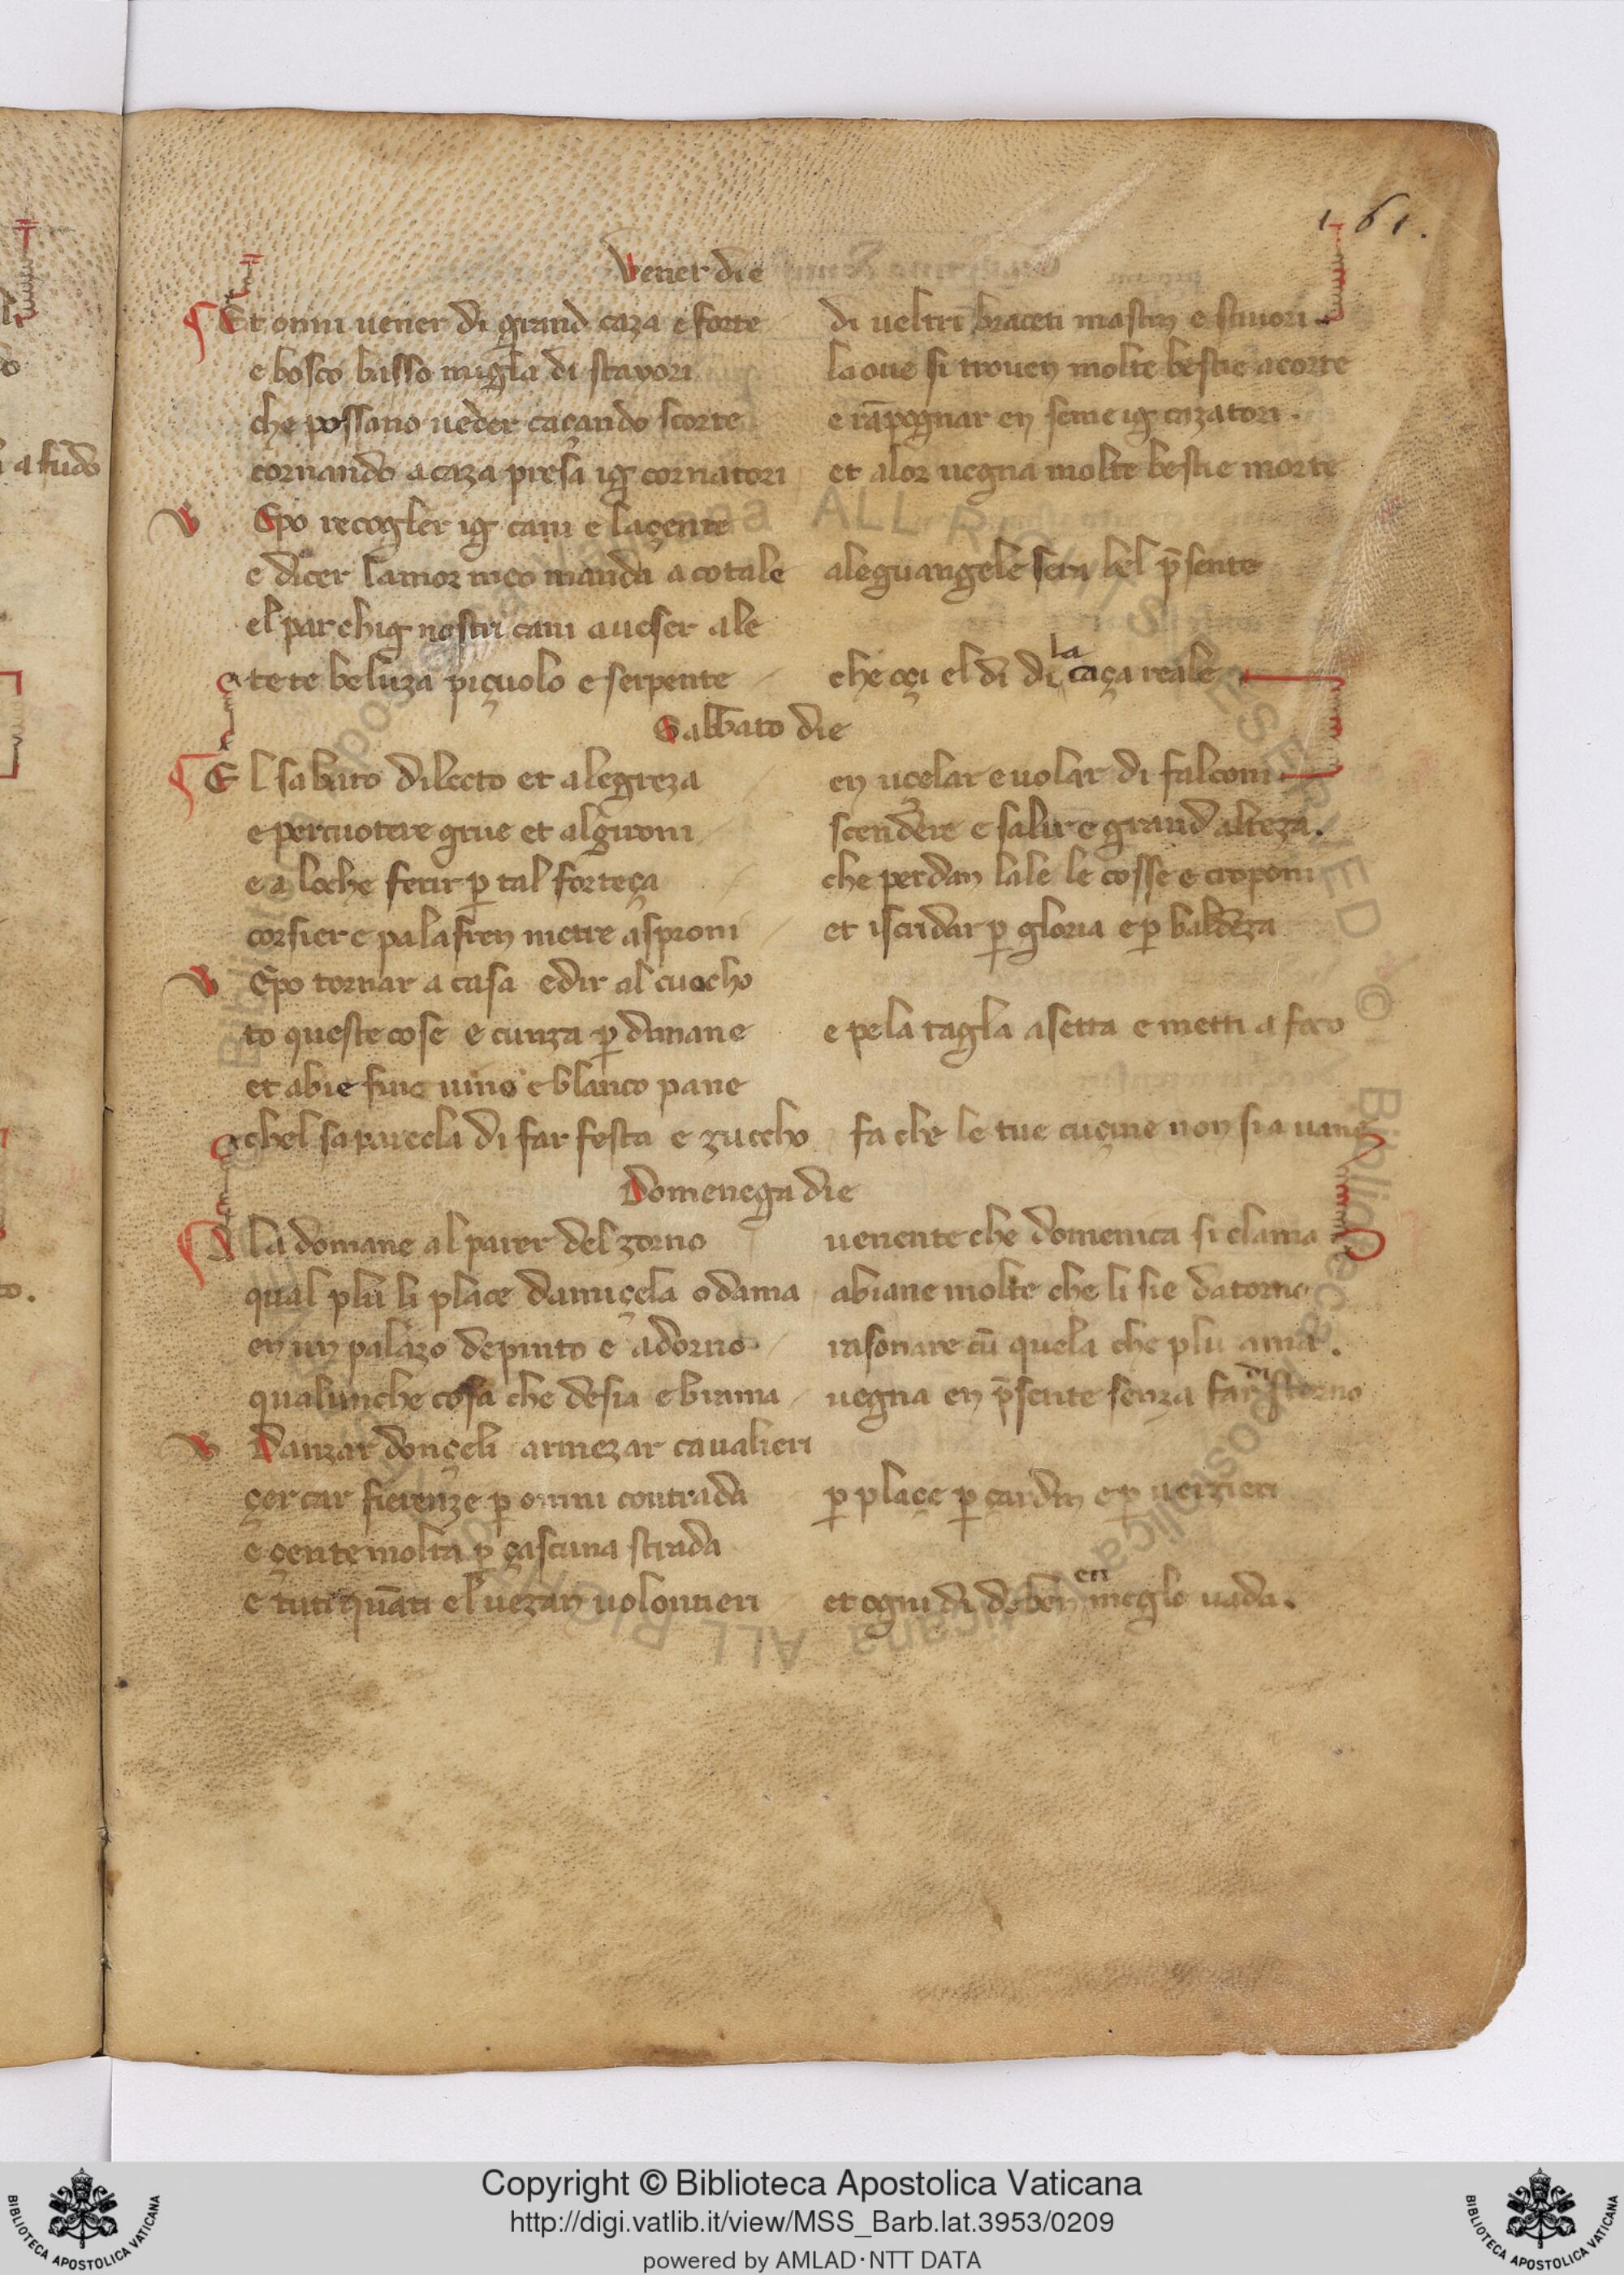 161.
Vener die
Et onni uener di grand caza e forte di ueltri braceti mastin e stiuori
e bosco basso migla di stayori la oue si trouen molte bestie acorte
che possano ueder caçando scorte e rāpognar en seme ig cazatori.
cornando a caza presa ig cornatori et alor uegna molte bestie morte
Epo recogler ig cani e la çente
e dicer lamor meo manda a cotale aleguangele sera bel p̄sente
el par chig nostri cani aueser ale
te te beluza piçuolo e serpente che oçi el di di la caça reale
Sabbato die
El sabato dilecto et alegreza en ucelar e uolar di falconi
e percuotere grue et alghironi scendere e salir e grand alteza.
e a loche ferir ꝑ tal forteça che perdan lale le cosse e croponi
corsier e palafren metre a sproni et iscridar ꝑ gloria e ꝑ baldeza
Epo tornar a casa e dir al cuocho
to queste cose e cunza ꝑ dimane e pela tagla asetta e metti a foco
et abie fino uino e blanco pane
chel saparecla di far festa e zuocho fa che le tue cuçine non sia uane
Domenega die
A la domane al parer del zorno uenente che domenica si clama
qual plu li place damiçela o dama abiane molte che li sie datorno
en un palazo depinto e adorno rasonare cū quela che plu ama.
qualunche cosa che desia e brama uegna en p̄sente senza far di storno
Danzar donçeli armezar caualieri
çercar fierenze ꝑ onni contrada ꝑ plaçe ꝑ çardin e ꝑ uerzieri
e çente molta ꝑ çascuna strada
e tuti quāti el uezan uolontieri et ogni di de ben en meglo uada.
Copyright © Biblioteca Apostolica Vaticana
http://digi.vatlib.it/view/MSS_Barb.lat.3953/0209
powered by AMLAD·NTT DATA